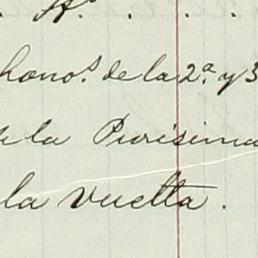 hono.s de la 2.a y 3
la Purísima
la vuelta.